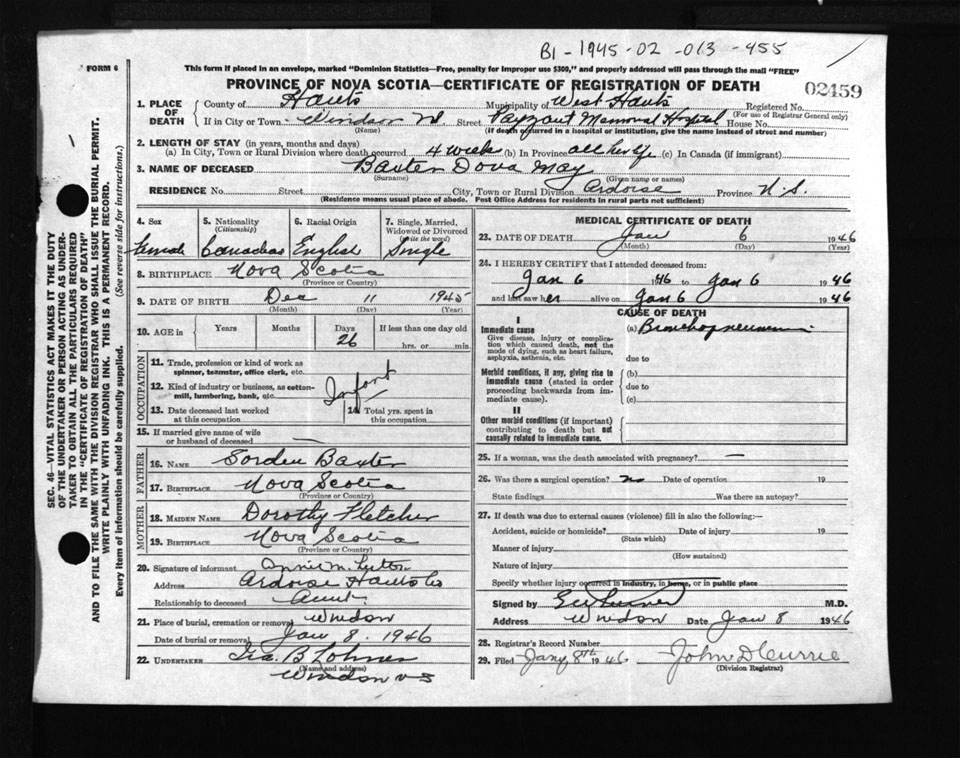 B1-1945-02-013-455
FORM 6
This form if placed in an envelope, marked "Dominion Statistics—Free, penalty for improper use $300," and properly addressed will pass through the mail "FREE"
PROVINCE OF NOVA SCOTIA—CERTIFICATE OF REGISTRATION OF DEATH
02459
1. PLACE OF DEATH
County of Hants Municipality of West Hants Registered No.
(For use of Registrar General only)
If in City or Town Windsor Street Payzant Memorial Hospital House No.
(Name) (If death occurred in a hospital or institution, give the name instead of street and number)
2. LENGTH OF STAY (in years, months and days)
(a) In City, Town or Rural Division where death occurred 4 weeks (b) In Province all her life (c) In Canada (if immigrant)
3. NAME OF DECEASED Baxter Dova May
(Surname) (Given name or names)
RESIDENCE No. Street City, Town or Rural Division Ardoise Province N.S.
(Residence means usual place of abode. Post Office Address for residents in rural parts not sufficient)
4. Sex Female
5. Nationality (Citizenship) Canadian
6. Racial Origin English
7. Single, Married, Widowed or Divorced (write the word) Single
8. BIRTHPLACE Nova Scotia
(Province or Country)
9. DATE OF BIRTH Dec 11 1945
(Month) (Day) (Year)
10. AGE in Years Months Days 26 If less than one day old
hrs. or min.
OCCUPATION
11. Trade, profession or kind of work as spinner, teamster, office clerk, etc.
12. Kind of industry or business, as cotton-mill, lumbering, bank, etc.
Infant
13. Date deceased last worked at this occupation
14. Total yrs. spent in this occupation
15. If married give name of wife or husband of deceased —
FATHER
16. NAME Baxter
17. BIRTHPLACE Nova Scotia
(Province or Country)
MOTHER
18. MAIDEN NAME Dorothy Fletcher
19. BIRTHPLACE Nova Scotia
(Province or Country)
20. Signature of informant Annie M.
Address Ardoise Hants Co
Relationship to deceased Aunt
21. Place of burial, cremation or removal Windsor
Date of burial or removal Jan 8. 1946
22. UNDERTAKER Ira. B Lohnes
(Name and address)
Windsor N S
MEDICAL CERTIFICATE OF DEATH
23. DATE OF DEATH Jan 6 1946
(Month) (Day) (Year)
24. I HEREBY CERTIFY that I attended deceased from:
Jan 6 1946 to Jan 6 1946
and last saw her alive on Jan 6 1946
CAUSE OF DEATH
I
Immediate cause
Give disease, injury or complication which caused death, not the mode of dying, such as heart failure, asphyxia, asthenia, etc.
(a) Bronchopneumonia
due to
Morbid conditions, if any, giving rise to immediate cause (stated in order proceeding backwards from immediate cause).
(b)
due to
(c)
II
Other morbid conditions (if important) contributing to death but not causally related to immediate cause.
25. If a woman, was the death associated with pregnancy? —
26. Was there a surgical operation? no Date of operation 19
State findings Was there an autopsy?
27. If death was due to external causes (violence) fill in also the following:—
Accident, suicide or homicide? Date of injury 19
(State which)
Manner of injury
(How sustained)
Nature of injury
Specify whether injury occurred in industry, in home, or in public place
Signed by M.D.
Address Windsor Date Jan 8 1946
28. Registrar's Record Number
29. Filed Jany 8th 1946 John D Currie
(Division Registrar)
SEC. 46—VITAL STATISTICS ACT MAKES IT THE DUTY
OF THE UNDERTAKER OR PERSON ACTING AS UNDER-
TAKER TO OBTAIN ALL THE PARTICULARS REQUIRED
IN THE "CERTIFICATE OF REGISTRATION OF DEATH"
AND TO FILE THE SAME WITH THE DIVISION REGISTRAR WHO SHALL ISSUE THE BURIAL PERMIT.
WRITE PLAINLY WITH UNFADING INK. THIS IS A PERMANENT RECORD.
Every item of information should be carefully supplied. (See reverse side for instructions.)